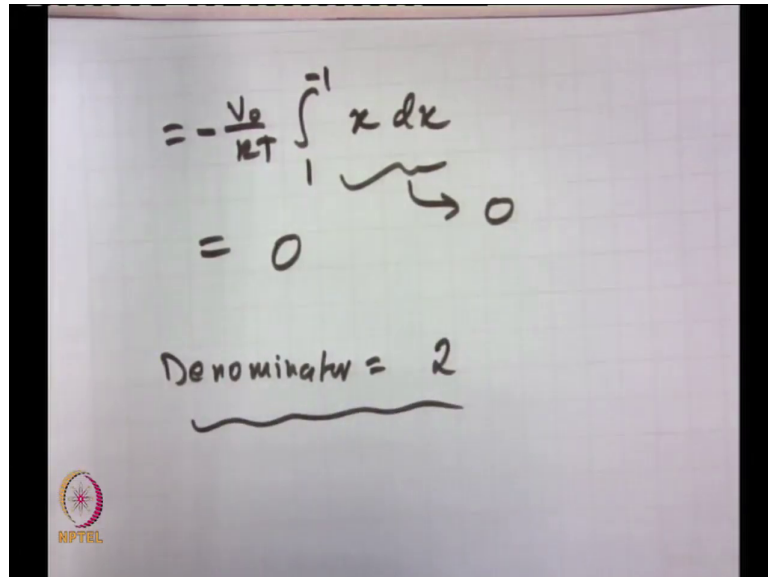 = - V₀/kT ∫₁⁻¹ x dx
→ 0
= 0
Denominator = 2
NPTEL